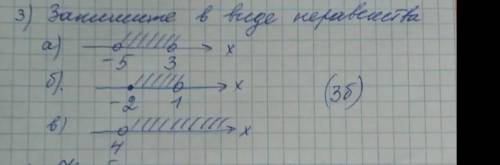 3) Запишите в виде неравенства
а) -5 3 х
б). -2 1 х (3б)
в) 4 х